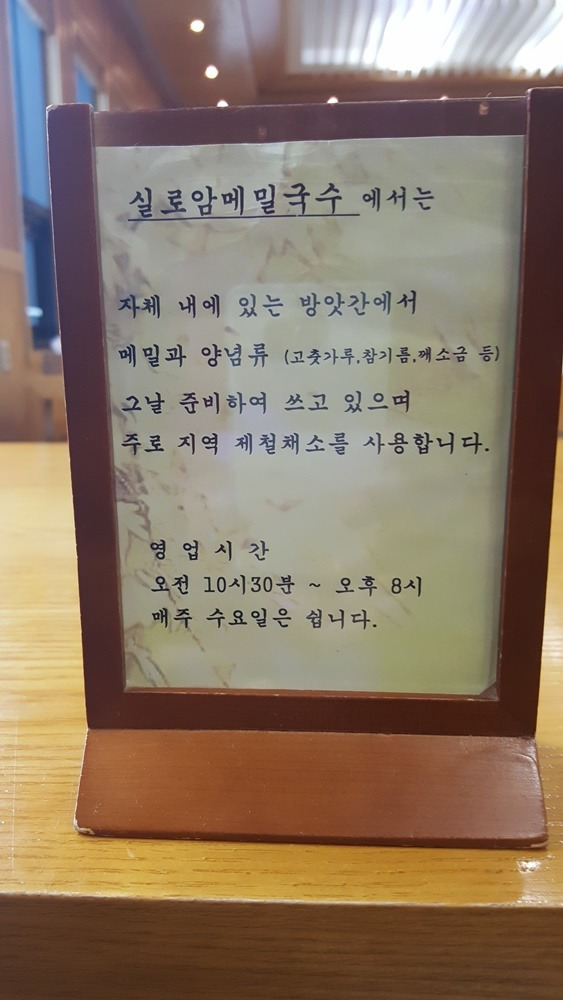 실로암메밀국수 에서는
자체 내에 있는 방앗간에서
메밀과 양념류 (고춧가루,참기름,깨소금 등)
그날 준비하여 쓰고 있으며
주로 지역 제철채소를 사용합니다.
영 업 시 간
오전 10시30분 ~ 오후 8시
매주 수요일은 쉽니다.